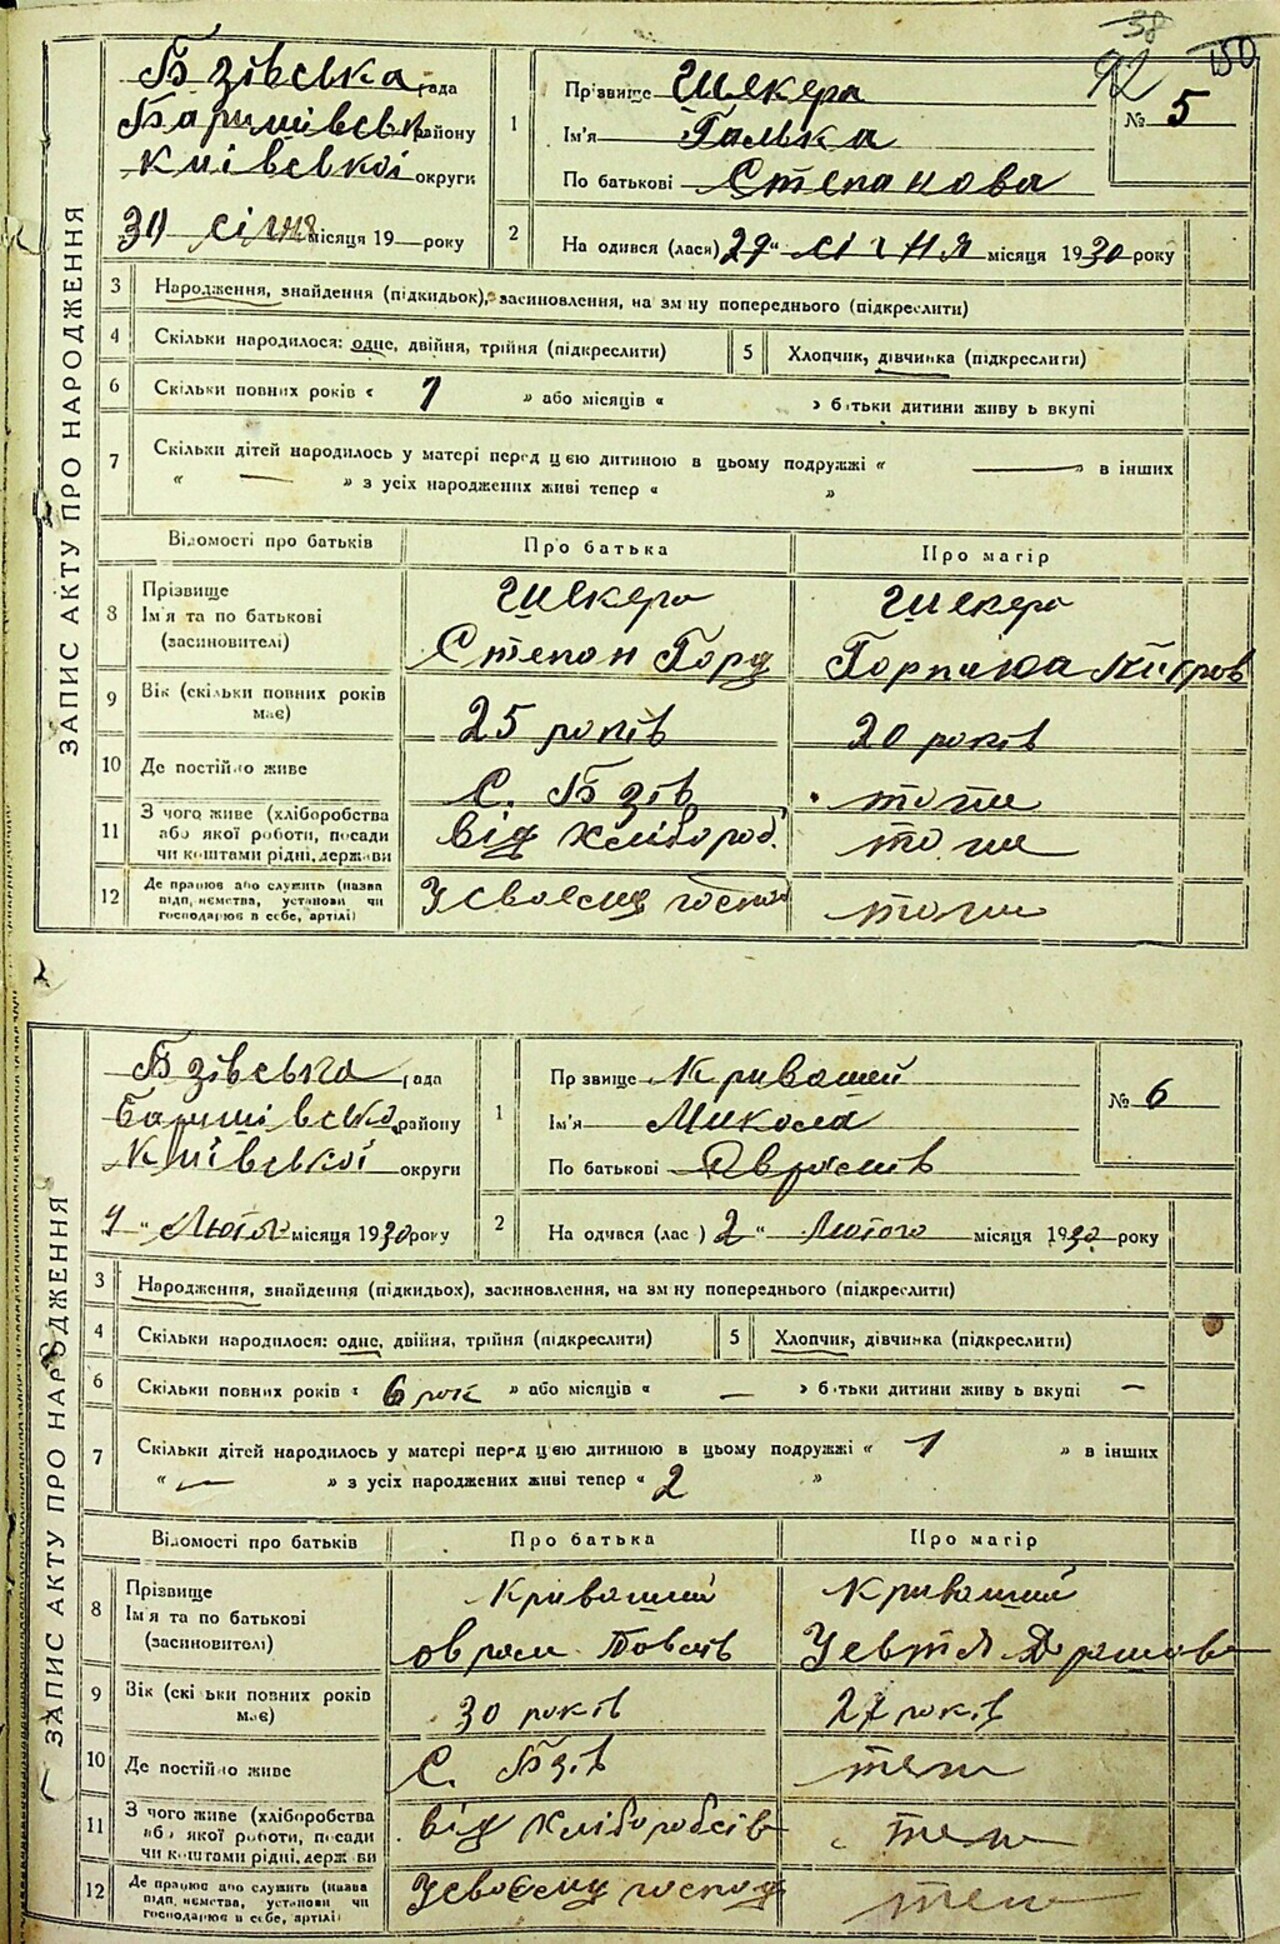 38
92
150
ЗАПИС АКТУ ПРО НАРОДЖЕННЯ
Бзівська рада
Баришівськ району
Київської округи
30 січня місяця 19 — року
1
Прізвище Шкекера
Ім'я Галька
По батькові Степанова
№ 5
2
На одився (лася) 27 " січня місяця 1930 року
3 Народження, знайдення (підкидьок), засиновлення, на зм ну попереднього (підкреслити)
4 Скільки народилося: одне, двійня, трійня (підкреслити) 5 Хлопчик, дівчинка (підкреслити)
6 Скільки повних років « 1 » або місяців « » б тьки дитини живу ь вкупі
7 Скільки дітей народилось у матері перед цією дитиною в цьому подружжі « — » в інших
« — » з усіх народжених живі тепер « »
Відомості про батьків Про батька Про матір
8 Прізвище
Ім'я та по батькові
(засиновителі)
Степан Горд
9 Вік (скільки повних років
має) 25 років 20 років
10 Де постійно живе с. Бзів тоже
11 З чого живе (хліборобства
або якої роботи, посади
чи коштами рідні, держави
від хлібороб. тоже
12 Де працює або служить (назва
підп, иємства, установи чи
господарює в себе, артілі)
У своєму господ тоже
ЗАПИС АКТУ ПРО НАРОДЖЕННЯ
Бзівська рада
Баришівська району
Київської округи
" Лютого місяця 1930 року
1
Пр звище Кривошей
Ім'я Микола
По батькові Аврамів
№ 6
2
На одився (лас ) 2 " Лютого місяця 1930 року
3 Народження, знайдення (підкидьох), засиновлення, на зм ну попереднього (підкреслити)
4 Скільки народилося: одне, двійня, трійня (підкреслити) 5 Хлопчик, дівчинка (підкреслити)
6 Скільки повних років « 6 рок » або місяців « — » б тьки дитини живу ь вкупі —
7 Скільки дітей народилось у матері перед цією дитиною в цьому подружжі « 1 » в інших
« — » з усіх народжених живі тепер « 2 »
Відомості про батьків Про батька Про матір
8 Прізвище
Ім'я та по батькові
(засиновителі)
Кривоший Кривоший
Оврам Павлів
9 Вік (скі ьки повних років
має) 30 років 27 років
10 Де постійно живе с. Бзів теж
11 З чого живе (хліборобства
або якої роботи, посади
чи коштами рідні, держ ви
від хліборобсів теж
12 Де працює або служить (назва
підп, иємства, установи чи
господарює в себе, артілі)
У своєму господ теж